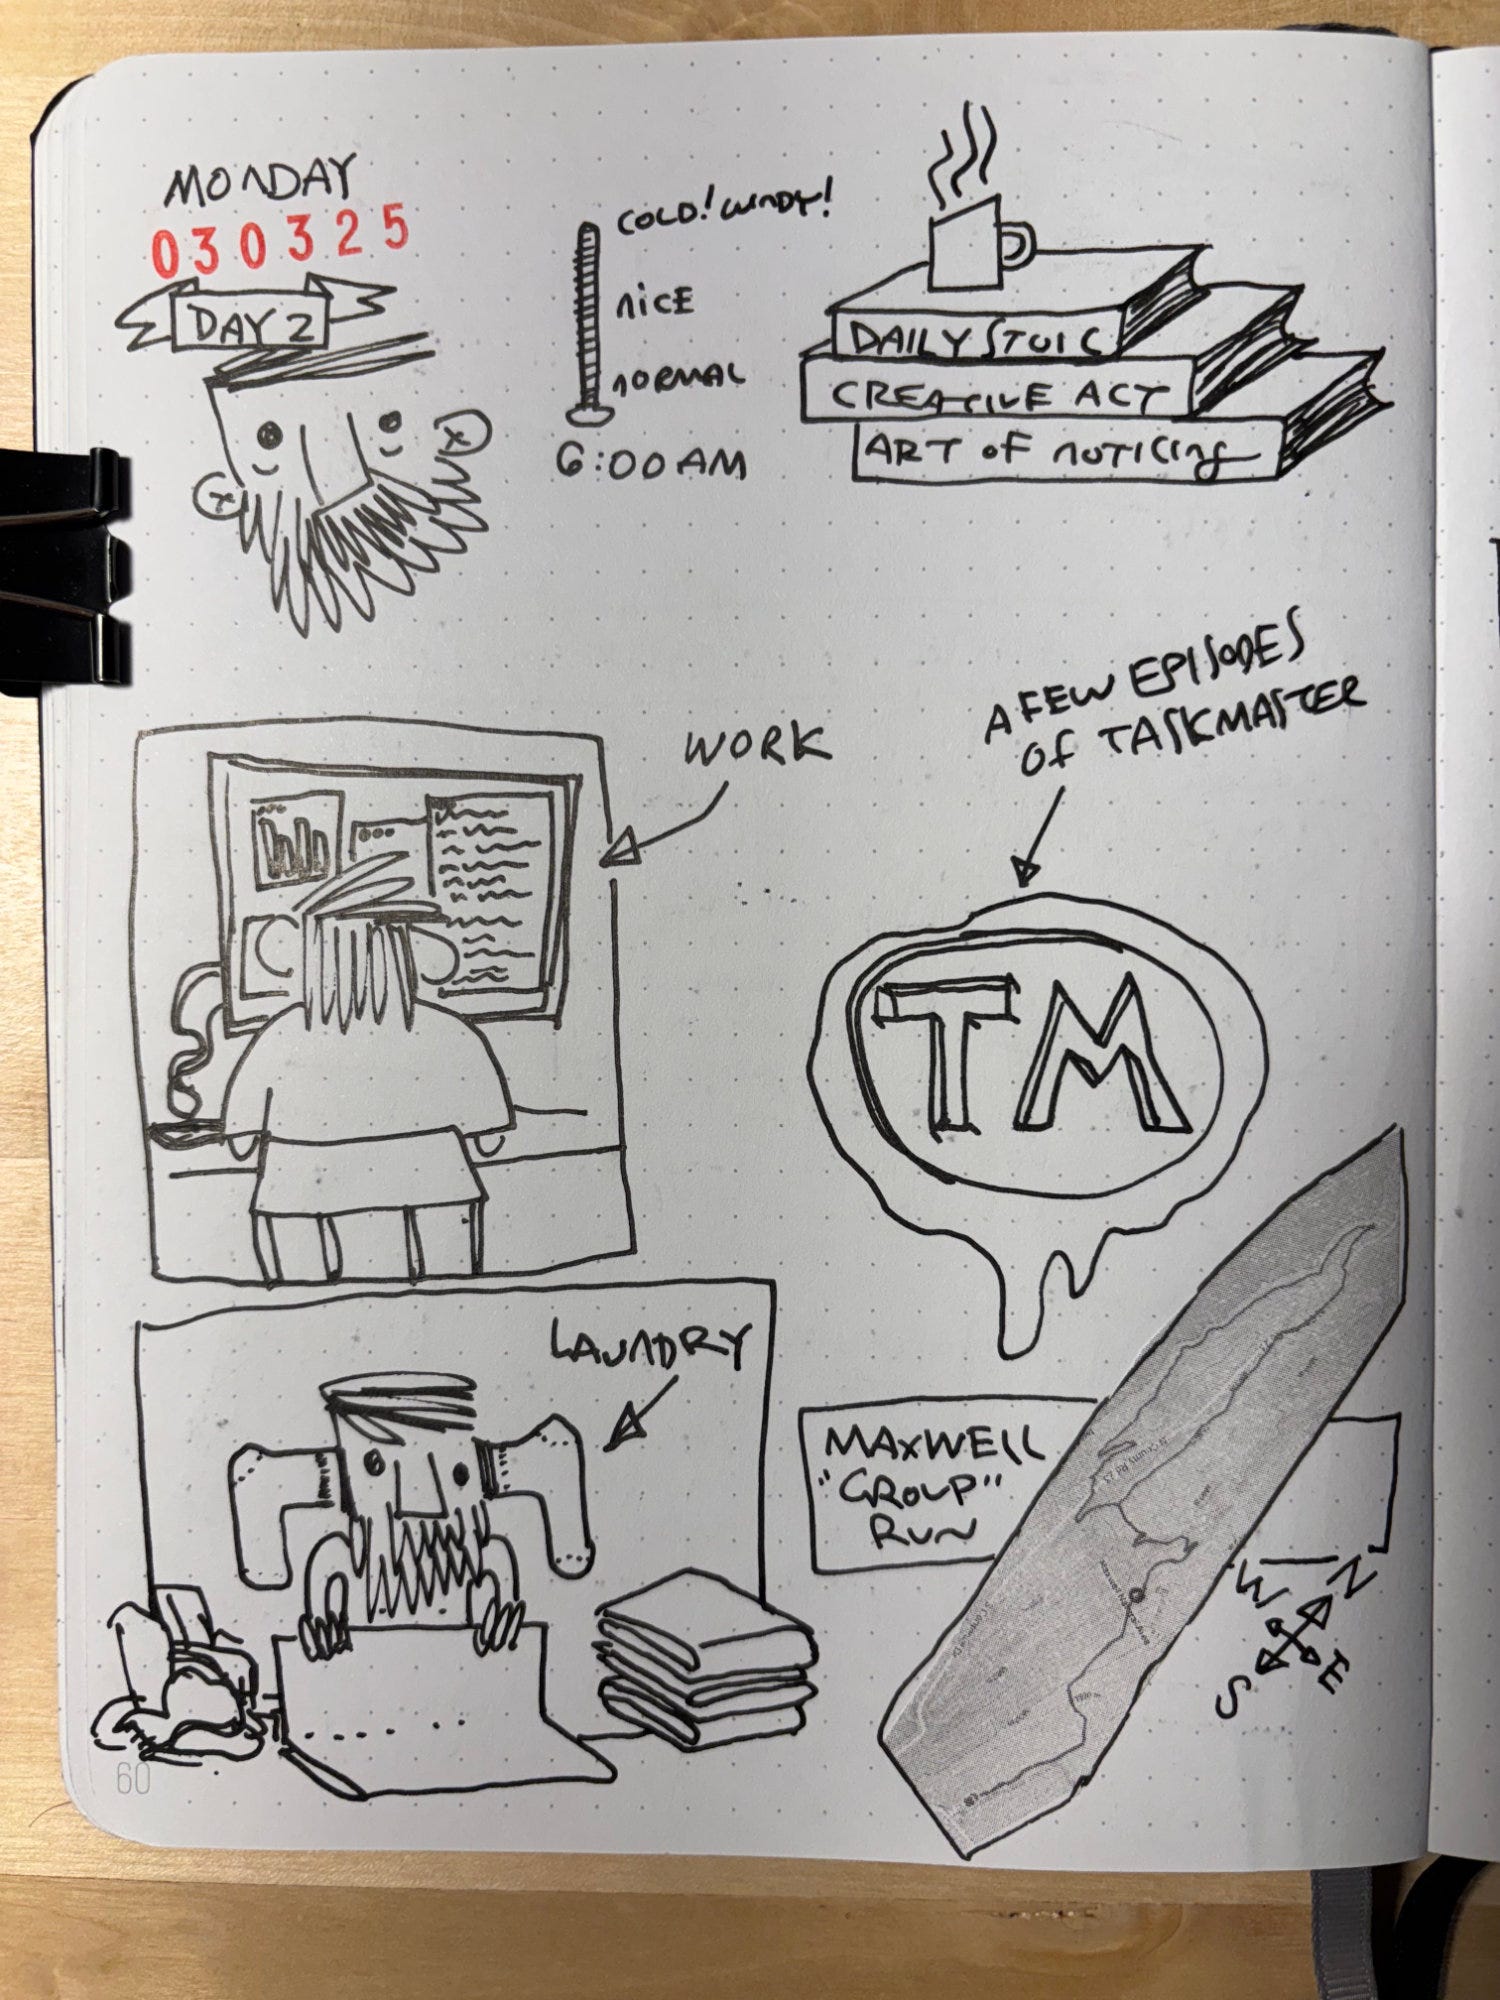 MONDAY
030325
DAY 2
COLD! WINDY!
NICE
NORMAL
6:00 AM
DAILY STOIC
CREATIVE ACT
ART OF NOTICING
WORK
A FEW EPISODES
OF TASKMASTER
TM
LAUNDRY
MAXWELL
"GROUP"
RUN
W
N
S
E
60